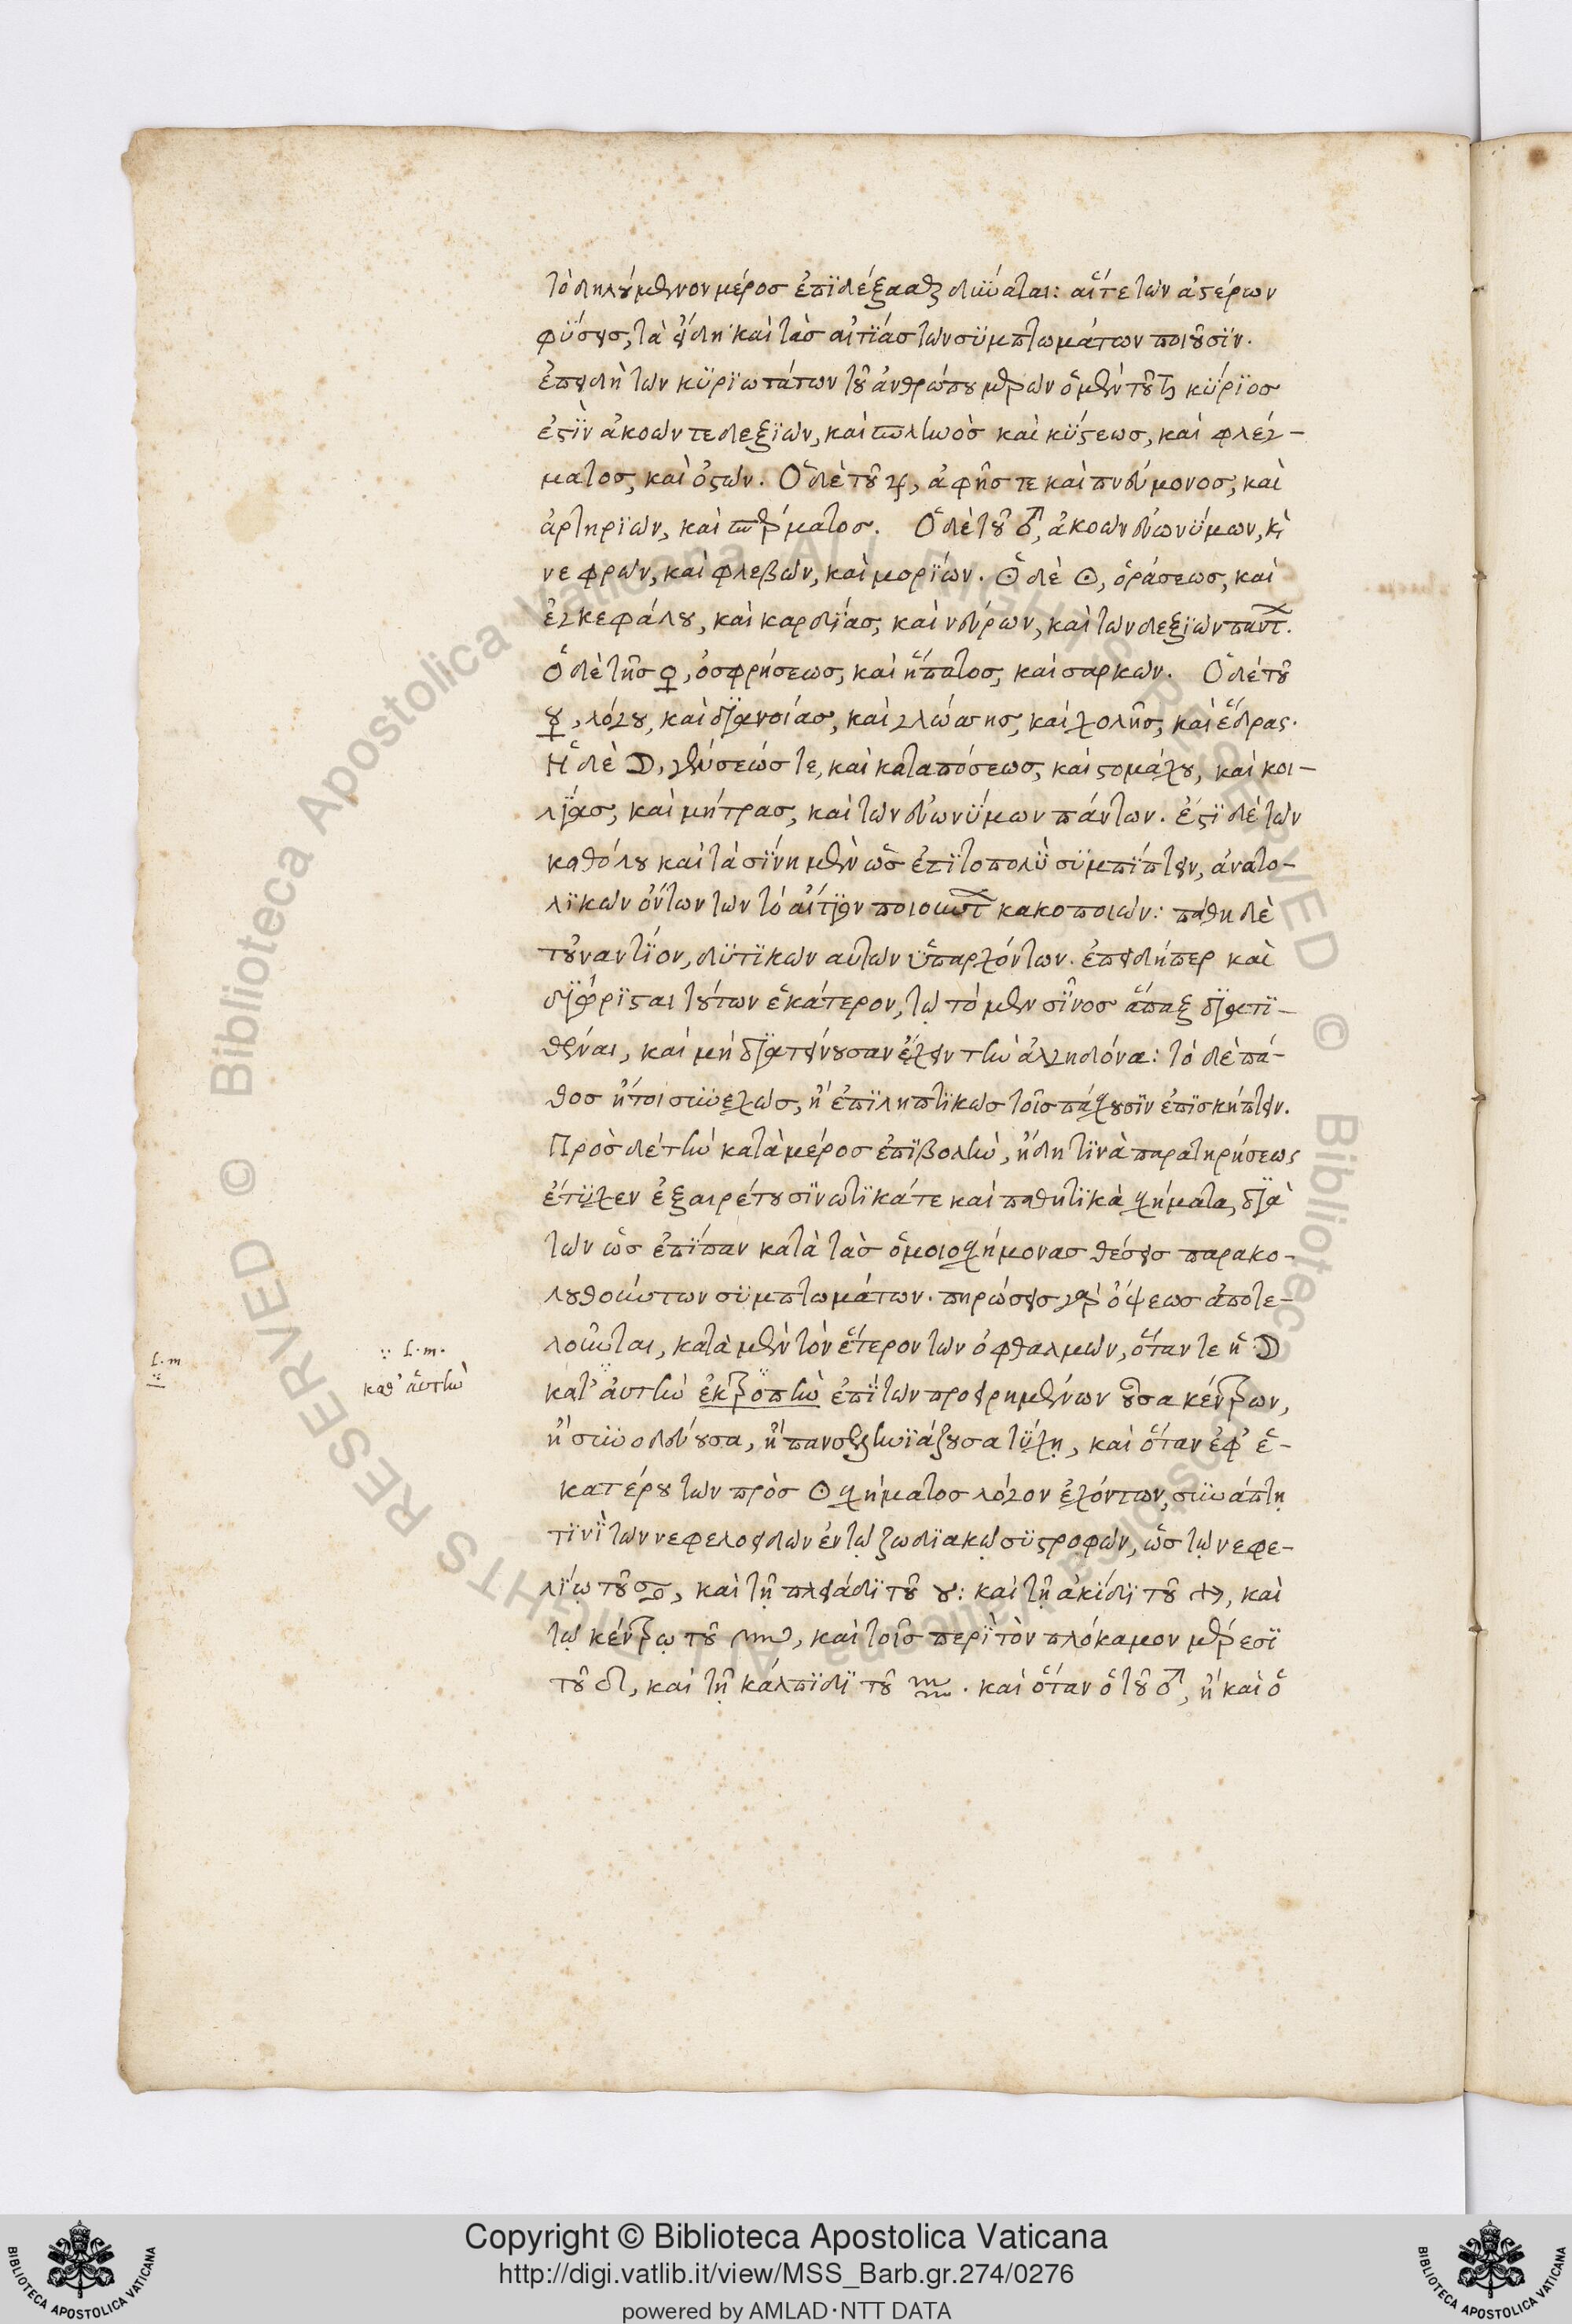 τὸ δηλούμενον μέρος ἐπιδέξασθαι δύναται: αἵ τε τῶν ἀστέρων
φύσεις, τὰ εἴδη καὶ τὰς αἰτίας τῶν συμπτωμάτων ποιοῦσιν.
ἐπειδὴ τῶν κυριωτάτων τοῦ ἀνθρώπου μερῶν ὁ μὲν τοῦ ♄ κύριος
ἐστὶν ἀκοῶν τε δεξιῶν, καὶ σπληνὸς καὶ κύστεως, καὶ φλέγ-
ματος, καὶ ὀστῶν. Ὁ δὲ τοῦ ♃, ἀφῆς τε καὶ πνεύμονος, καὶ
ἀρτηριῶν, καὶ σπέρματος. Ὁ δὲ τοῦ ♂, ἀκοῶν εὐωνύμων, κὶ
νεφρῶν, καὶ φλεβῶν, καὶ μορίων. Ὁ δὲ ☉, ὁράσεως, καὶ
ἐγκεφάλου, καὶ καρδίας, καὶ νεύρων, καὶ τῶν δεξιῶν παντ.
ὁ δὲ τῆς ♀, ὀσφρήσεως, καὶ ἥπατος, καὶ σαρκῶν. Ὁ δὲ τοῦ
☿, λόγου, καὶ διανοίας, καὶ γλώσσης, καὶ χολῆς, καὶ ἕδρας.
Ἡ δὲ ☽, γεύσεώς τε, καὶ καταπόσεως, καὶ στομάχου, καὶ κοι-
λίας, καὶ μήτρας, καὶ τῶν εὐωνύμων πάντων. ἔστι δὲ τῶν
καθόλου καὶ τὰ σίνη μὲν ὡς ἐπιτοπολὺ συμπίπτειν, ἀνατο-
λικῶν ὄντων τῶν τὸ αἴτιον ποιούντ κακοποιῶν: πάθη δὲ
τοὐναντίον, δυτικῶν αὐτῶν ὑπαρχόντων. ἐπειδήπερ καὶ
διώρισται τούτων ἑκάτερον, τῷ τὸ μὲν σῖνος ἅπαξ διατι-
θέναι, καὶ μὴ διατείνουσαν ἔχειν τὴν ἀλγηδόνα: τὸ δὲ πά-
θος ἤτοι συνεχῶς, ἢ ἐπιληπτικῶς τοῖς πάσχουσιν ἐπισκήπτειν.
Πρὸς δὲ τὴν κατὰ μέρος ἐπιβολὴν, ἤδη τινὰ παρατηρήσεως
ἔτυχεν ἐξαιρέτου σινωτικά τε καὶ παθητικὰ σχήματα, διὰ
τῶν ὡς ἐπίπαν κατὰ τὰς ὁμοιοσχήμονας θέσεις παρακο-
λουθούντων συμπτωμάτων. πηρώσεις γὰρ ὄψεως ἀποτε-
λοῦνται, κατὰ μὲν τὸν ἕτερον τῶν ὀφθαλμῶν, ὅταν τε ἡ ☽
∵ f.m.
καθ' αὑτὴν
f.m
κατ' αὐτὴν ἐκτροπὴν ἐπὶ τῶν προειρημένων οὖσα κέντρων,
ἢ συνοδεύουσα, ἢ πανσεληνιάζουσα τύχῃ, καὶ ὅταν ἐφ' ἑ-
κατέρου τῶν πρὸς ☉ σχήματος λόγον ἐχόντων, συνάπτῃ
τινὶ τῶν νεφελοειδῶν ἐν τῷ ζωδιακῷ συστροφῶν, ὡς τῷ νεφε-
λίῳ τοῦ ♋, καὶ τῇ πλειάδι τοῦ ♉: καὶ τῇ ἀκίδι τοῦ ♐, καὶ
τῷ κέντρῳ τοῦ ♏, καὶ τοῖς περὶ τὸν πλόκαμον μέρεσι
τοῦ ♌, καὶ τῇ κάλπιδι τοῦ ♒. καὶ ὅταν ὁ τοῦ ♂, ἢ καὶ ὁ
Copyright © Biblioteca Apostolica Vaticana
http://digi.vatlib.it/view/MSS_Barb.gr.274/0276
powered by AMLAD·NTT DATA